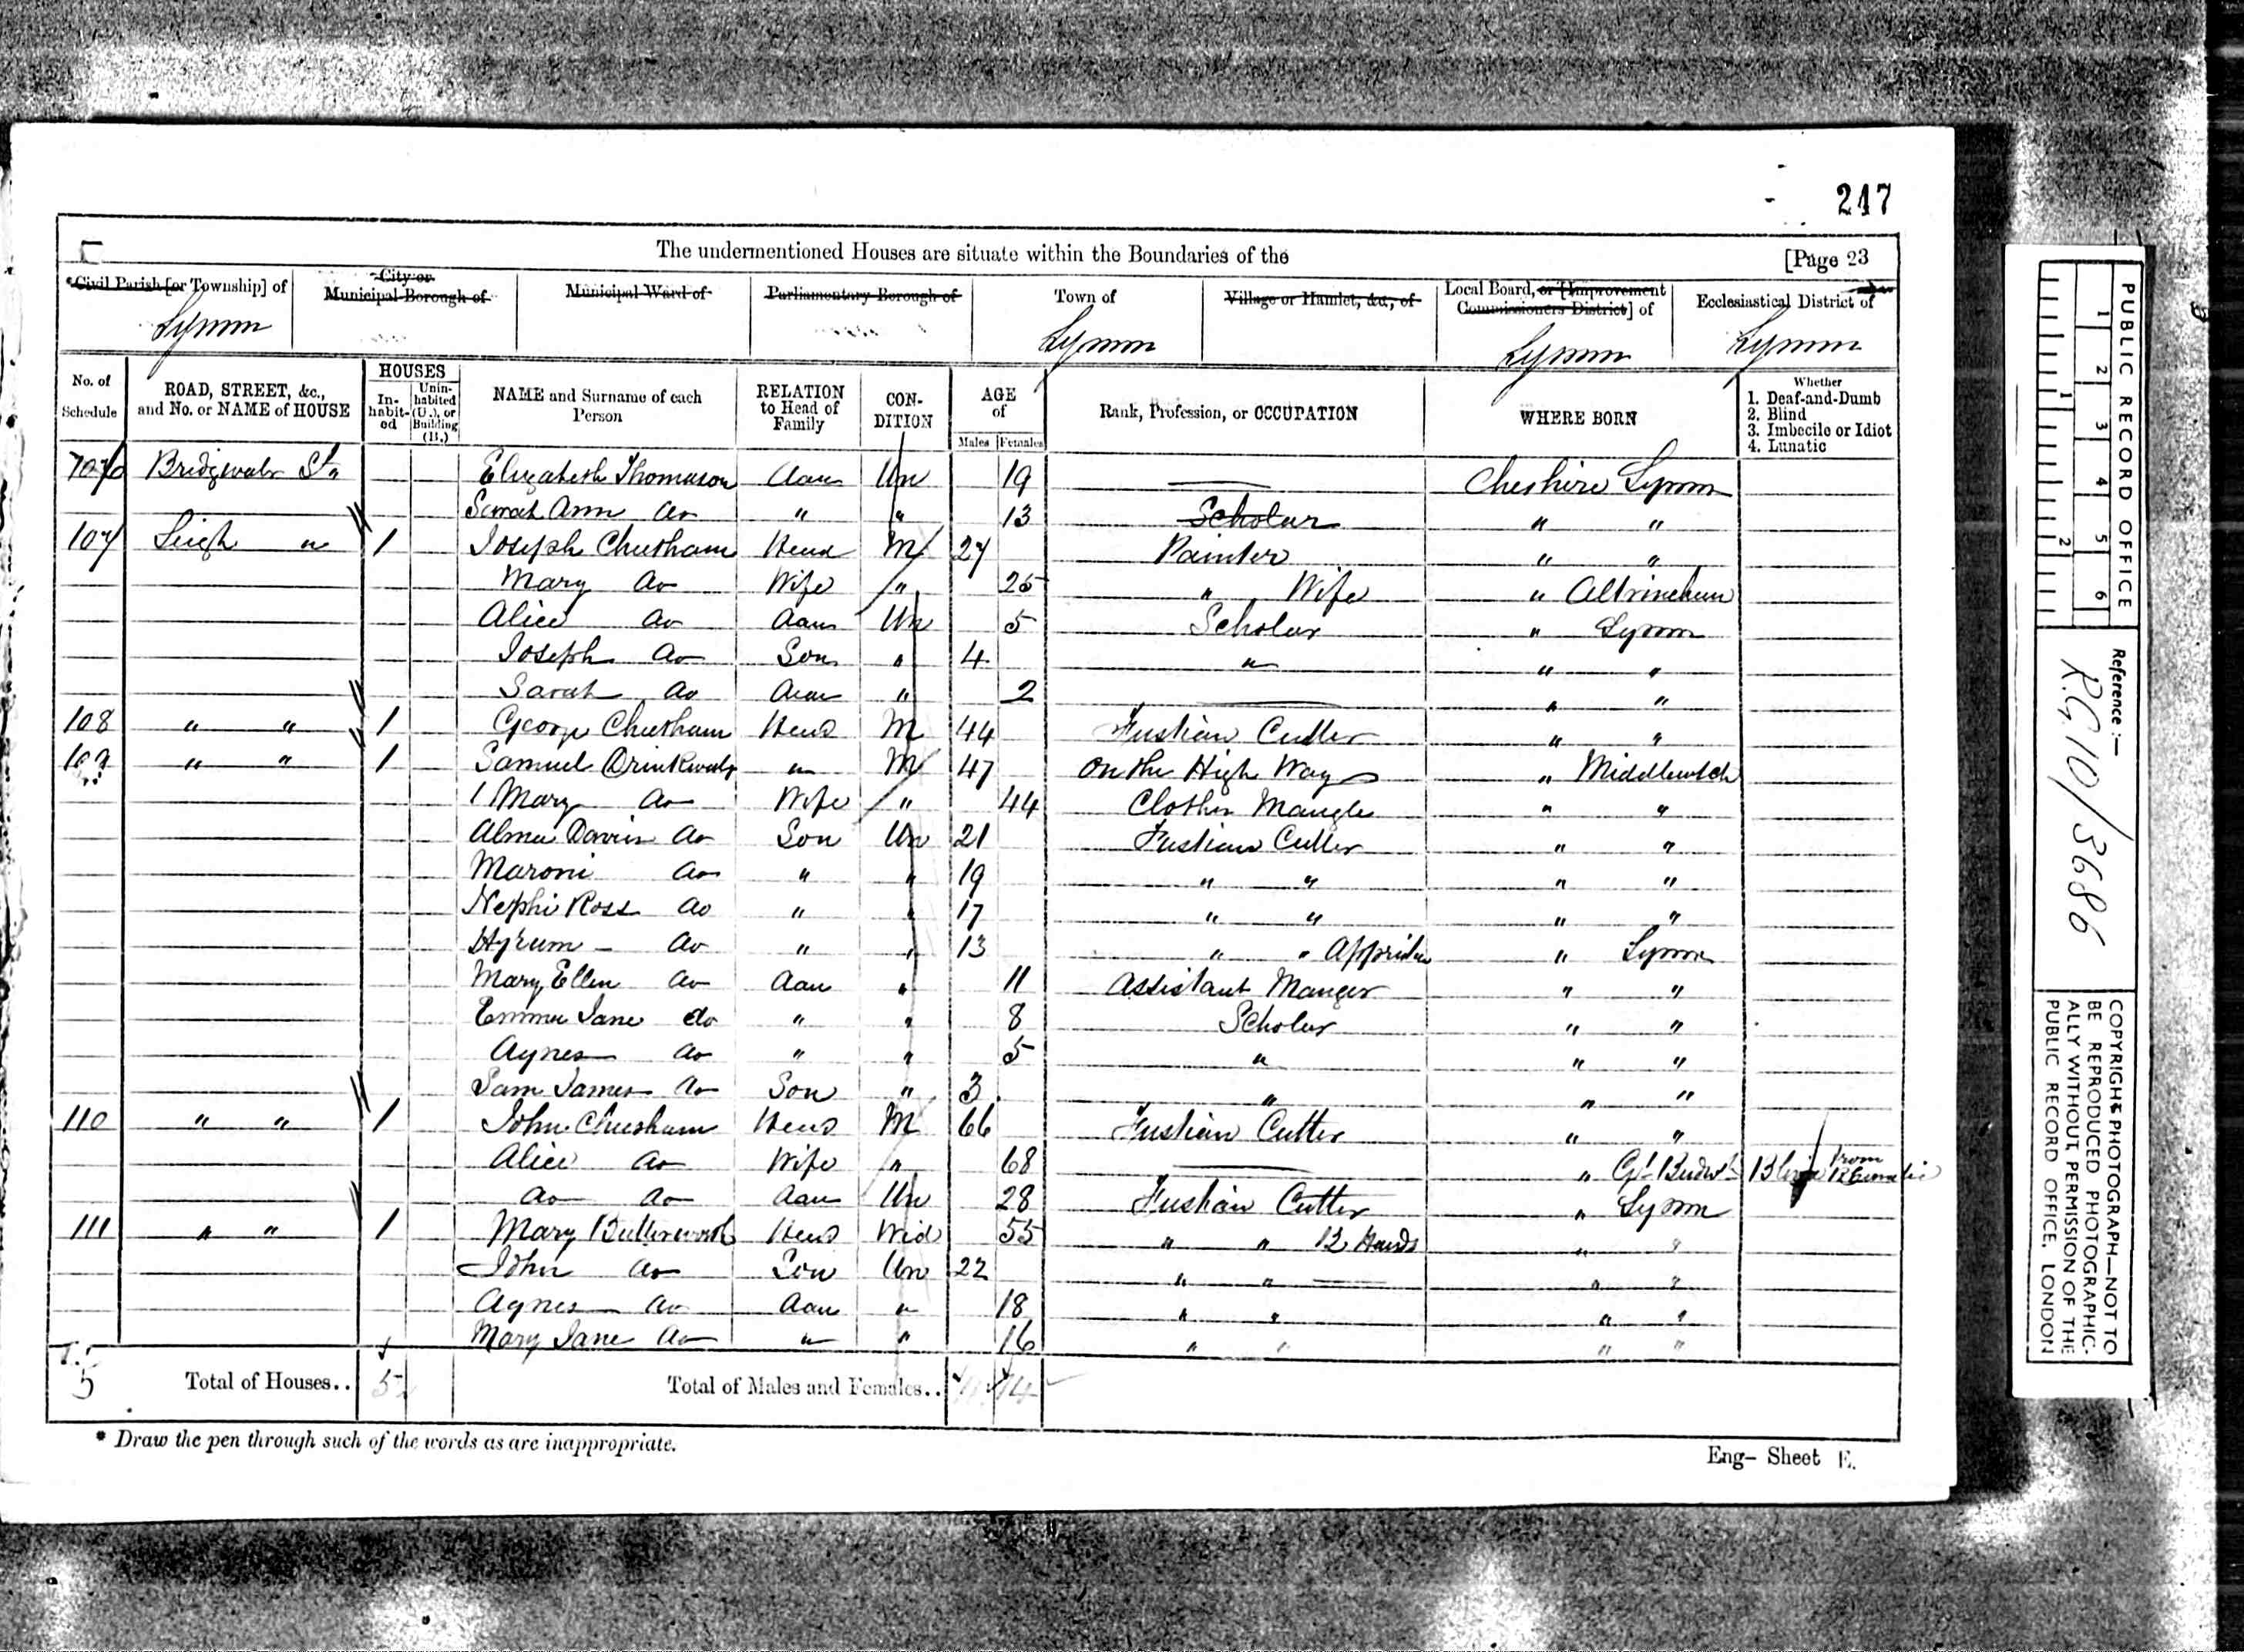 247
The undermentioned Houses are situate within the Boundaries of the [Page 23
Civil Parish [or Township] of
City or Municipal Borough of
Municipal Ward of
Parliamentary Borough of
Town of
Village or Hamlet, &c., of
Local Board, or [Improvement Commissioners District] of
Ecclesiastical District of
Lymm Lymm Lymm Lymm
No. of Schedule
ROAD, STREET, &c., and No. or NAME of HOUSE
HOUSES
In-habit-ed
Unin-habited (U.), or Building (B.)
NAME and Surname of each Person
RELATION to Head of Family
CON-DITION
AGE of
Males Females
Rank, Profession, or OCCUPATION
WHERE BORN
Whether
1. Deaf-and-Dumb
2. Blind
3. Imbecile or Idiot
4. Lunatic
Elizabeth Thomason dau Un 19 Cheshire Lymm
Sarah Ann do " " 13 Scholar " "
107 Leigh " 1 Joseph Cheetham Head M 27 Painter " "
Mary do Wife " 25 " Wife " Altrincham
Alice do dau Un 5 Scholar " Lymm
Joseph do Son " 4 " " "
Sarah do dau " 2 " "
108 " " 1 George Cheetham Head M 44 Fustian Cutter " "
109 " " 1 Samuel Drinkwatr " M 47 On the High Way " Middlewich
Mary do Wife " 44 Clothes Mangle " "
Alma do Son Un 21 Fustian Cutter " "
Maroni do " " 19 " " " "
Nephi Ross do " " 17 " " " "
Hyrum do " " 13 " " " Lymm
Mary Ellen do dau " 11 Assistant Manger " "
Emma Jane do " " 8 Scholar " "
Agnes do " " 5 " " "
Sam James do Son " 3 " " "
110 " " 1 John Cheetham Head M 66 Fustian Cutter " "
Alice do Wife " 68 " Gt Budwh Blind from
do do dau Un 28 Fustian Cutter " Lymm
111 " " 1 Mary Butterworth Head Wid 55 " " 12 Hands " "
John do Son Un 22 " " " "
Agnes do dau " 18 " " " "
Mary Jane do " " 16 " " " "
5 Total of Houses.. 5 Total of Males and Females.. 14
* Draw the pen through such of the words as are inappropriate.
Eng- Sheet E.
PUBLIC RECORD OFFICE
1 2 3 4 5 6
1 2
Reference :-
R.G 10/3686
COPYRIGHT PHOTOGRAPH—NOT TO
BE REPRODUCED PHOTOGRAPHIC-
ALLY WITHOUT PERMISSION OF THE
PUBLIC RECORD OFFICE, LONDON